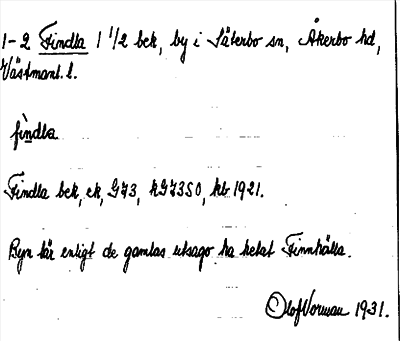 1-2 Findla 1 1/2 bek, by i Säterbo sn, Åkerbo hd,
Västmanl. l.
fìndla
Findla bek, ek, G73, kG73SO, kb 1921.
Byn lär enligt de gamlas utsago ha hetat Finnhälla.
Olof Norman 1931.